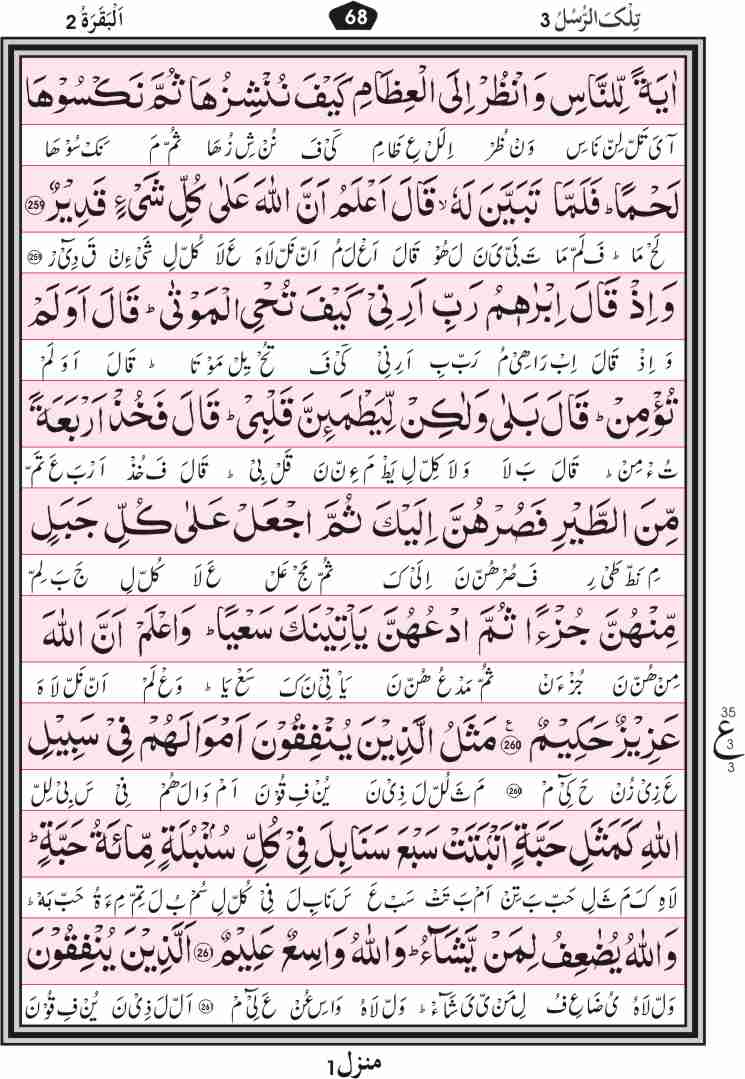 تِلْكَ الرُّسُلُ 3 68 اَلْبَقَرَةُ 2
اٰيَةً لِّلنَّاسِ وَانْظُرْ اِلَى الْعِظَامِ كَيْفَ نُنْشِزُهَا ثُمَّ نَكْسُوْهَا
آ يَ تَلْ لِنْ نَاسِ وَنْ ظُرْ اِلَلْ عِ ظَامِ كَىْ فَ نُنْ شِ زُ هَا ثُمْ مَ نَكْ سُوْ هَا
لَحْمًا ؕ فَلَمَّا تَبَيَّنَ لَهٗ ۙ قَالَ اَعْلَمُ اَنَّ اللّٰهَ عَلٰى كُلِّ شَىْءٍ قَدِيْرٌ 259
لَحْ مَا ؕ فَ لَمْ مَا تَ بَىْ يَ نَ لَ هُوْ قَالَ اَعْ لَ مُ اَنْ نَلْ لَا هَ عَ لَا كُلْ لِ شَىْ ءِنْ قَ دِىْٓ رْ 259
وَاِذْ قَالَ اِبْرٰهٖمُ رَبِّ اَرِنِىْ كَيْفَ تُحْىِ الْمَوْتٰى ؕ قَالَ اَوَلَمْ
وَ اِذْ قَالَ اِبْ رَا هِىْ مُ رَبْ بِ اَ رِ نِىْ كَىْ فَ تُحْ يِلْ مَوْ تَا ؕ قَالَ اَ وَ لَمْ
تُؤْمِنْ ؕ قَالَ بَلٰى وَلٰكِنْ لِّيَطْمَئِنَّ قَلْبِىْ ؕ قَالَ فَخُذْ اَرْبَعَةً
تُ ءْ مِنْ ؕ قَالَ بَ لَا وَ لَا كِلْ لِ يَطْ مَ ءِنْ نَ قَلْ بِىْ ؕ قَالَ فَ خُذْ اَرْ بَ عَ تَمْ
مِّنَ الطَّيْرِ فَصُرْهُنَّ اِلَيْكَ ثُمَّ اجْعَلْ عَلٰى كُلِّ جَبَلٍ
مِ نَطْ طَىْ رِ فَ صُرْ هُنْ نَ اِ لَىْ كَ ثُمْ مَجْ عَلْ عَ لَا كُلْ لِ جَ بَ لِمْ
مِّنْهُنَّ جُزْءًا ثُمَّ ادْعُهُنَّ يَاْتِيْنَكَ سَعْيًا ؕ وَاعْلَمْ اَنَّ اللّٰهَ
مِنْ هُنْ نَ جُزْ ءَنْ ثُمْ مَدْ عُ هُنْ نَ يَا تِىْ نَ كَ سَعْ يَا ؕ وَعْ لَمْ اَنْ نَلْ لَا هَ
عَزِيْزٌ حَكِيْمٌ 260 ع مَثَلُ الَّذِيْنَ يُنْفِقُوْنَ اَمْوَالَهُمْ فِىْ سَبِيْلِ
35 ع 3 3
عَ زِىْ زُنْ حَ كِىْٓ مْ 260 مَ ثَ لُلْ لَ ذِىْ نَ يُنْ فِ قُوْ نَ اَمْ وَا لَ هُمْ فِىْ سَ بِىْ لِلْ
اللّٰهِ كَمَثَلِ حَبَّةٍ اَنْۢبَتَتْ سَبْعَ سَنَابِلَ فِىْ كُلِّ سُنْۢبُلَةٍ مِّائَةُ حَبَّةٍ ؕ
لَا هِ كَ مَ ثَ لِ حَبْ بَ تِنْ اَمْ بَ تَتْ سَبْ عَ سَ نَابِ لَ فِىْ كُلْ لِ سُمْ بُ لَ تِمْ مِ ءَ ةُ حَبْ بَهْ ؕ
وَاللّٰهُ يُضٰعِفُ لِمَنْ يَّشَآءُ ؕ وَاللّٰهُ وَاسِعٌ عَلِيْمٌ 261 اَلَّذِيْنَ يُنْفِقُوْنَ
وَلْ لَا هُ يُ ضَا عِ فُ لِ مَنْ يَ شَآءْ ؕ وَلْ لَا هُ وَا سِ عُنْ عَ لِىْٓ مْ 261 اَلْ لَ ذِىْ نَ يُنْ فِ قُوْ نَ
منزل 1